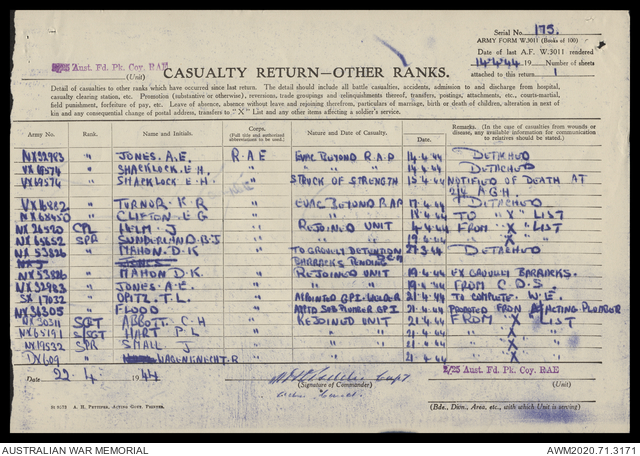 Serial No. 175.
ARMY FORM W.3011 (Books of 100)
Date of last A.F. W.3011 rendered
14.4.44 19 Number of sheets
attached to this return 1
2/25 Aust. Fd. Pk. Coy. RAE
(Unit)
CASUALTY RETURN—OTHER RANKS.
Detail of casualties to other ranks which have occurred since last return. The detail should include all battle casualties, accidents, admission to and discharge from hospital,
casualty clearing station, etc. Promotion (substantive or otherwise), reversions, trade groupings and relinquishments thereof, transfers, postings, attachments, etc., courts-martial,
field punishment, forfeiture of pay, etc. Leave of absence, absence without leave and rejoining therefrom, particulars of marriage, birth or death of children, alteration in next of
kin and any consequential change of postal address, transfers to "X" List and any other items affecting a soldier's service.
Army No. Rank. Name and Initials. Corps. (Full title and authorised abbreviations to be used.) Nature and Date of Casualty. Date. Remarks. (In the case of casualties from wounds or disease, any available information for communication to relatives should be stated.)
NX32983 " JONES. A.E. R A E EVAC BEYOND R.A.P 14.4.44 DETACHED
VX69574 " SHACKLOCK. E.H. " " " " 14.4.44 DETACHED
VX69574 " SHACKLOCK E.H " STRUCK OF STRENGTH 15.4.44 NOTIFIED OF DEATH AT
A.G.H.
VX16882 " TURNOR. K R " EVAC BEYOND RAP 17.4.44 DETACHED
NX68450 " CLIFTON. E G " " 18.4.44 TO "X" LIST
NX26520 CPL HELM. J " REJOINED UNIT 4.4.44 FROM "X" LIST
SPR SUNDERLAND. B.J " " " 19.4.44 " "X" "
NX53826 " MAHON. D.K " TO GROVELY DETENTION 27.3.44 DETACHED
NXJ JONES BARRACKS PENDING DCM
NX53826 " MAHON D.K. " REJOINED UNIT 19.4.44 EX GROVELY BARRACKS.
NX32983 " JONES. A.E. " " " 19.4.44 FROM C.D.S.
SX17032 " OPITZ. T.L. " 21.4.44 TO COMPLETE W.E.
NX36305 " FLOOD " APPTD PLUMBER GPI 21.4.44 FROM ACTING PLUMBER
SGT ABBOTT. C.H " REJOINED UNIT 21.4.44 FROM "X" LIST
HART P.L " " " 21.4.44 " "X" "
SPR SMALL J " " " 21.4.44 " "X" "
" WAGENKNECHT. R " " " 21.4.44 " "X" "
Date 22.4.1944
Capt
(Signature of Commander)
2/25 Aust. Fd. Pk. Coy. RAE
(Unit)
(Bde., Divn., Area, etc., with which Unit is serving)
A. H. PETTIFER, ACTING GOVT. PRINTER.
AUSTRALIAN WAR MEMORIAL
AWM2020.71.3171